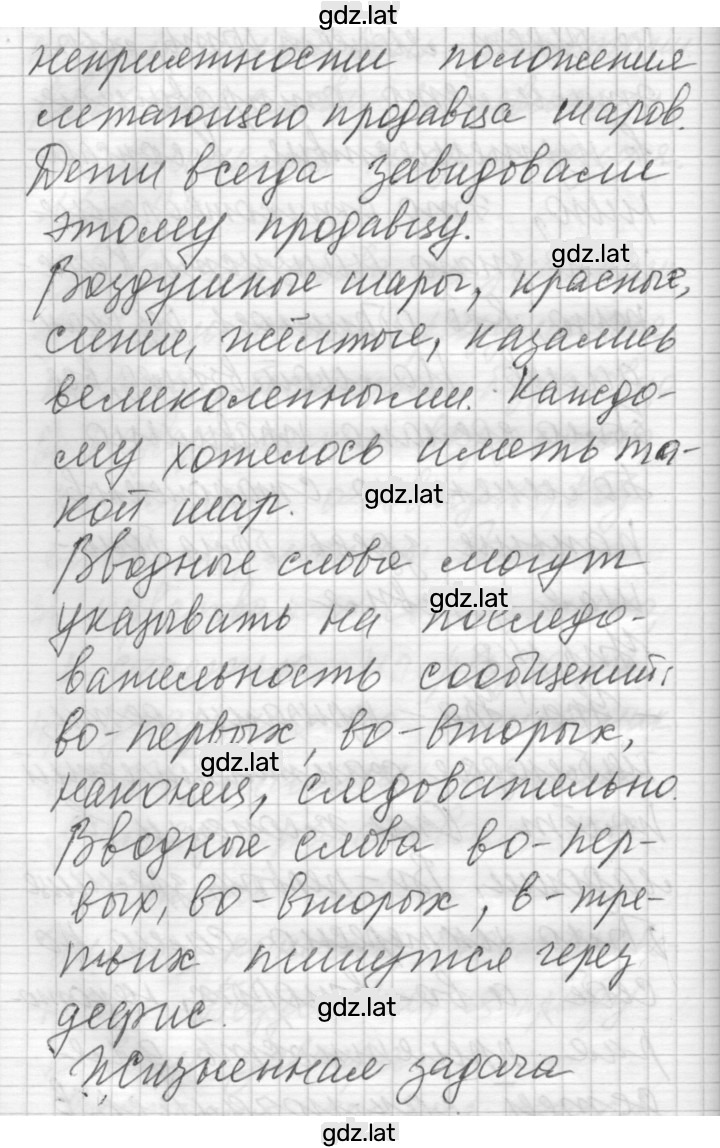 gdz.lat
неприятности положения
летающего продавца шаров.
Дети всегда завидовали
этому продавцу.
gdz.lat
Воздушные шары, красные,
синие, жёлтые, казались
великолепными. Каждо-
му хотелось иметь та-
кой шар.
gdz.lat
Вводные слова могут
gdz.lat
указывать на последо-
вательность сообщений:
во-первых, во-вторых,
gdz.lat
наконец, следовательно.
Вводные слова во-пер-
вых, во-вторых, в-тре-
тьих пишутся через
gdz.lat
дефис.
Жизненная задача
gdz.lat